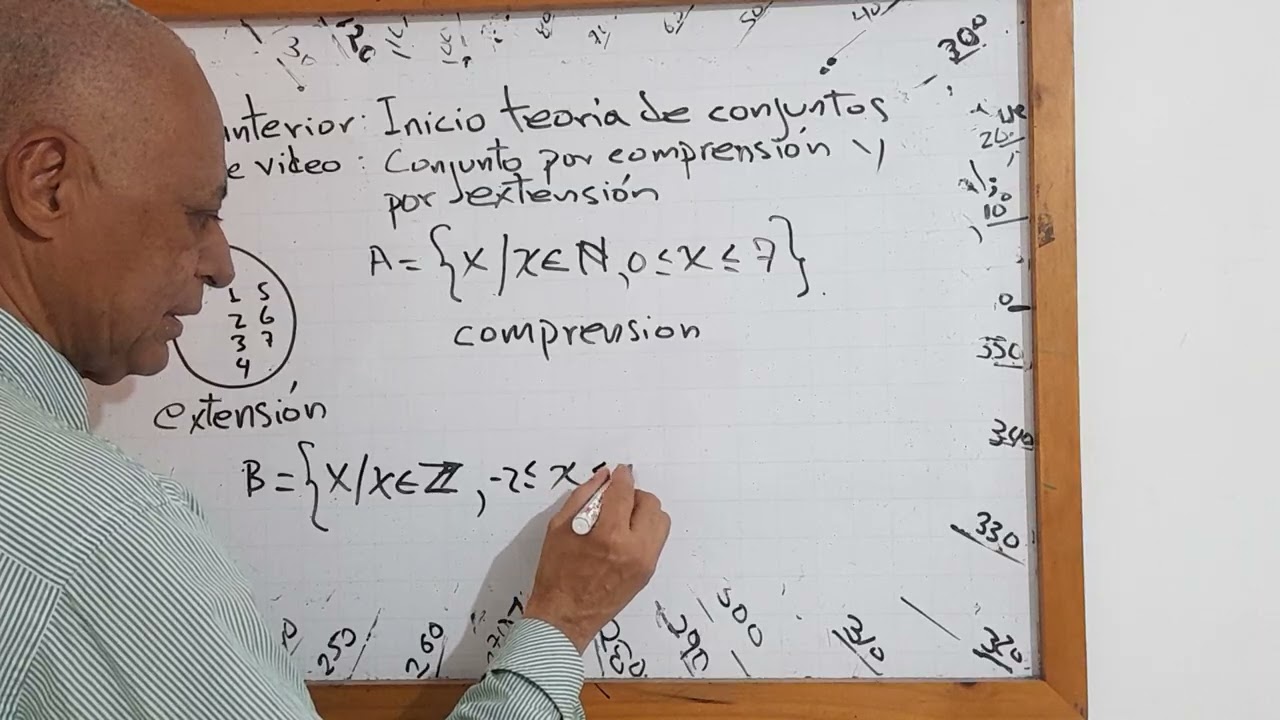 30 40 50 60 300
anterior: Inicio teoría de conjuntos
e video: Conjunto por comprensión y
por extensión
20
10
A = {X/x∈ℕ, 0 ≤ x ≤ 7}.
1 5
2 6
3 7
4
comprension
0
350
extensión
340
B = {X/x∈ℤ, -2 ≤ x ≤
330
250 260 300 310 320